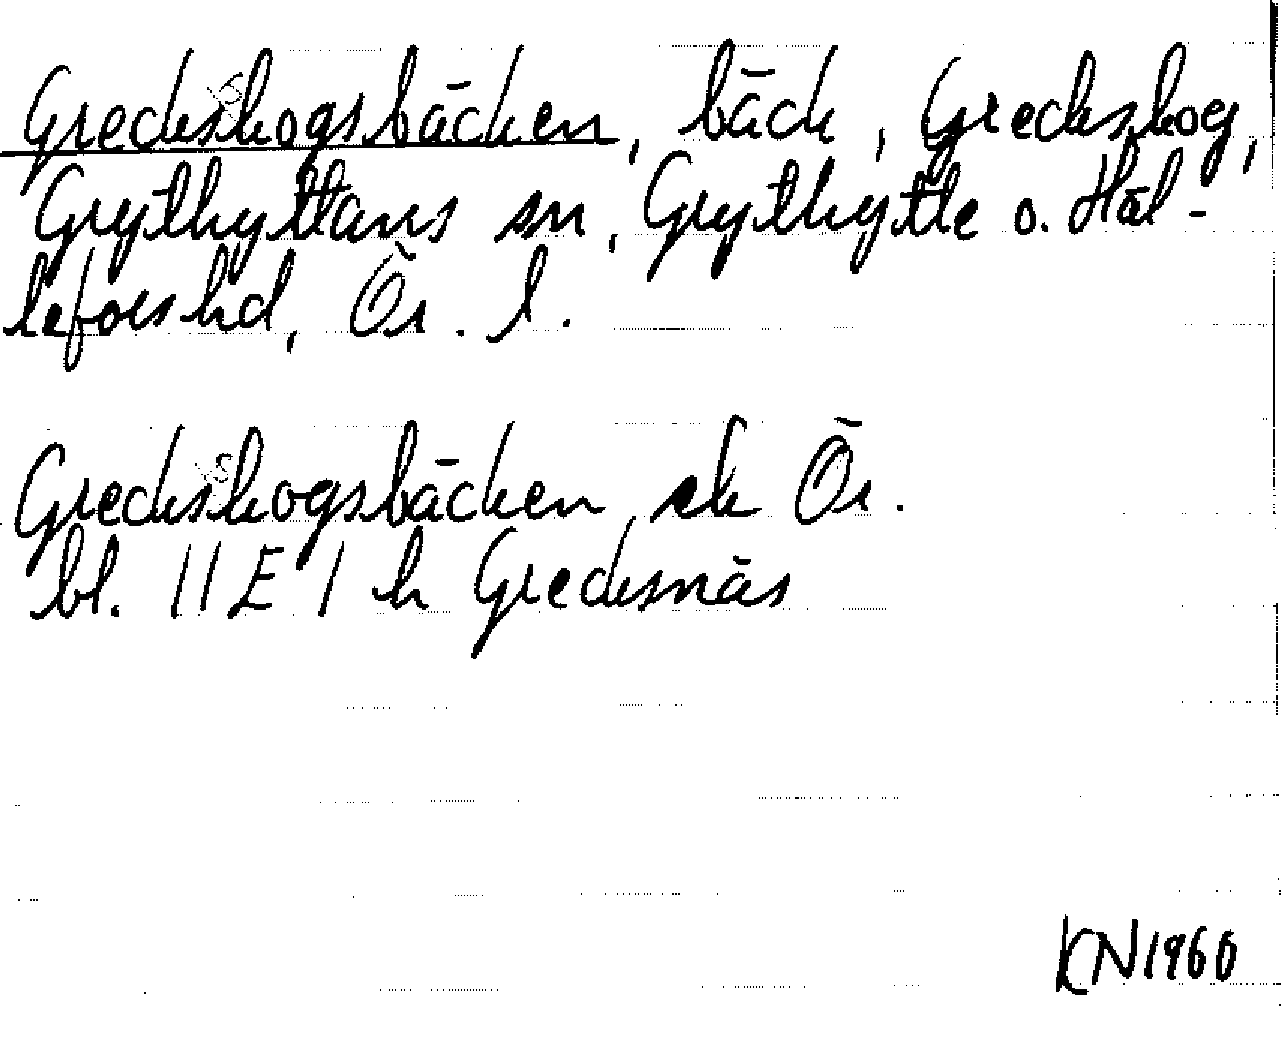 Grecksskogsbäcken, bäck, Grecksskog,
Grythyttans sn, Grythytte o. Häl-
lefors hd, Ör. l.
Grecksskogsbäcken ek Ör.
bl. 11 E 1 h Grecksnäs
KN1960